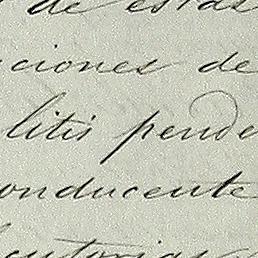 de estas
ciones de
litis pende
onducente
cutorias